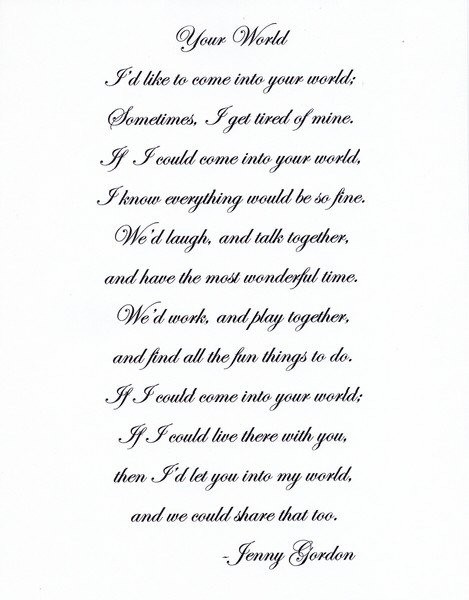 Your World
I'd like to come into your world;
Sometimes, I get tired of mine.
If I could come into your world,
I know everything would be so fine.
We'd laugh, and talk together,
and have the most wonderful time.
We'd work, and play together,
and find all the fun things to do.
If I could come into your world;
If I could live there with you,
then I'd let you into my world,
and we could share that too.
-Jenny Gordon